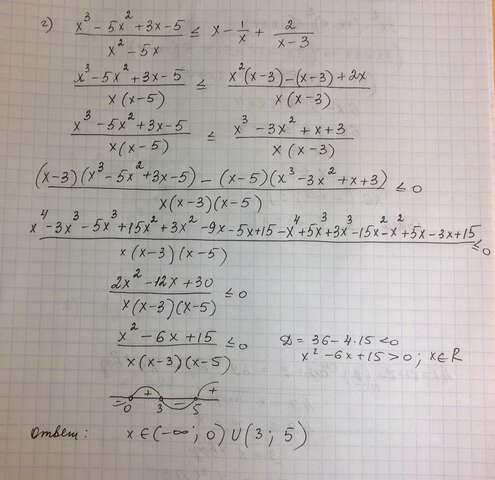 г) (x³ - 5x² + 3x - 5)/(x² - 5x) ≤ x - 1/x + 2/(x-3)
(x³ - 5x² + 3x - 5)/(x(x-5)) ≤ (x²(x-3) - (x-3) + 2x)/(x(x-3))
(x³ - 5x² + 3x - 5)/(x(x-5)) ≤ (x³ - 3x² + x + 3)/(x(x-3))
((x-3)(x³ - 5x² + 3x - 5) - (x-5)(x³ - 3x² + x + 3))/(x(x-3)(x-5)) ≤ 0
(x⁴ - 3x³ - 5x³ + 15x² + 3x² - 9x - 5x + 15 - x⁴ + 5x³ + 3x³ - 15x² - x² + 5x - 3x + 15)/(x(x-3)(x-5)) ≤ 0
(2x² - 12x + 30)/(x(x-3)(x-5)) ≤ 0
(x² - 6x + 15)/(x(x-3)(x-5)) ≤ 0 D = 36 - 4·15 < 0
x² - 6x + 15 > 0 ; x ∈ R
- + - +
0 3 5
Ответ: x ∈ (-∞; 0) ∪ (3; 5)